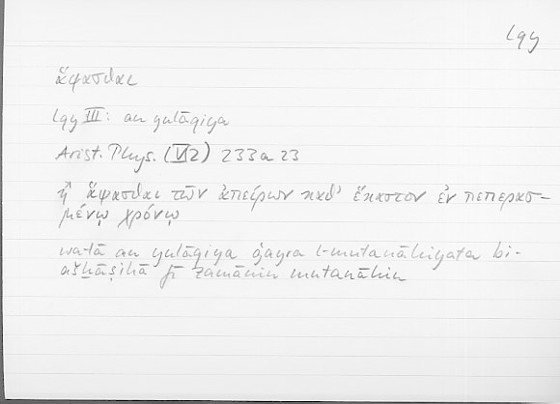 lqy
ἅψασθαι
lqy III: an yulāqiya
Arist. Phys. (VI 2) 233 a 23
ἢ ἅψασθαι τῶν ἀπείρων καθ’ ἕκαστον ἐν πεπερασ-
μένῳ χρόνῳ
wa-lā an yulāqiya ġayra l-mutanāhiyati bi-
ašḫāṣihā fī zamānin mutanāhin